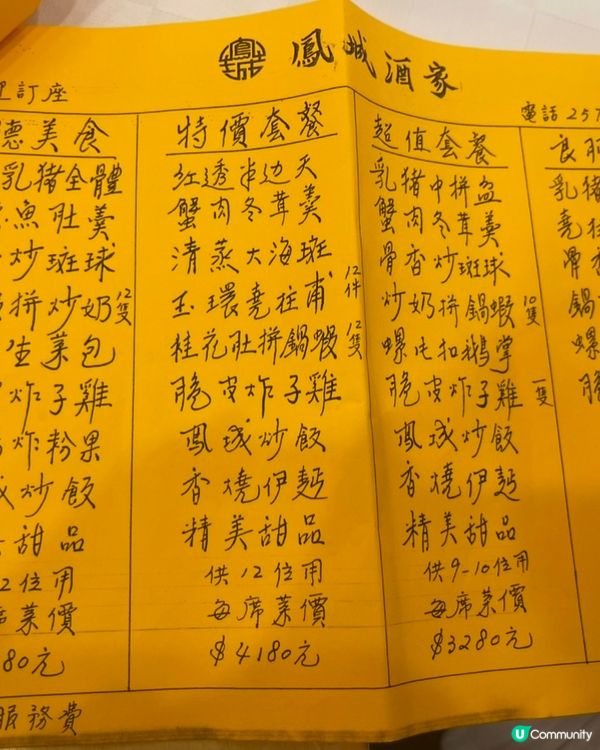 鳳城酒家
訂座
電話 257
德美食
乳豬全體
魚肚羹
炒斑球
拼炒奶 12隻
生菜包
炸子雞
炸粉果
炒飯
甜品
2位用
席菜價
80元
特價套餐
紅透半边天
蟹肉冬茸羹
清蒸大海斑
玉環堯柱甫 12件
桂花肚拼鍋蝦 12隻
脆皮炸子雞
鳳城炒飯
香燒伊麵
精美甜品
供12位用
每席菜價
$4180元
超值套餐
乳豬中拼盆
蟹肉冬茸羹
骨香炒斑球
炒奶拼鍋蝦 10隻
螺片扣鵝掌
脆皮炸子雞 一隻
鳳城炒飯
香燒伊麵
精美甜品
供9-10位用
每席菜價
$3280元
良
乳豬
堯柱
骨
鍋
螺
脆
服務費
U Community